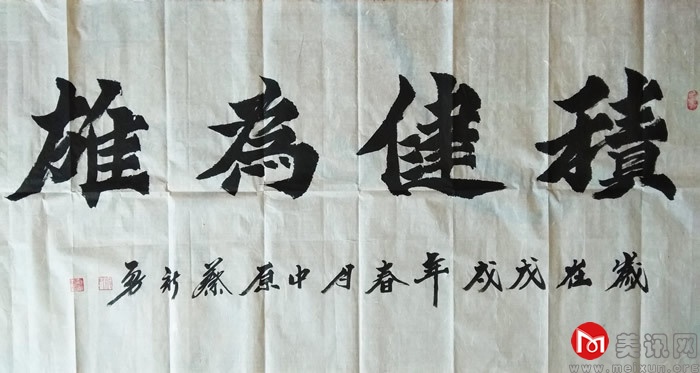 積健為雄
歲在戊戌年春月中原蔡新勇
美讯网
www.meixun.org